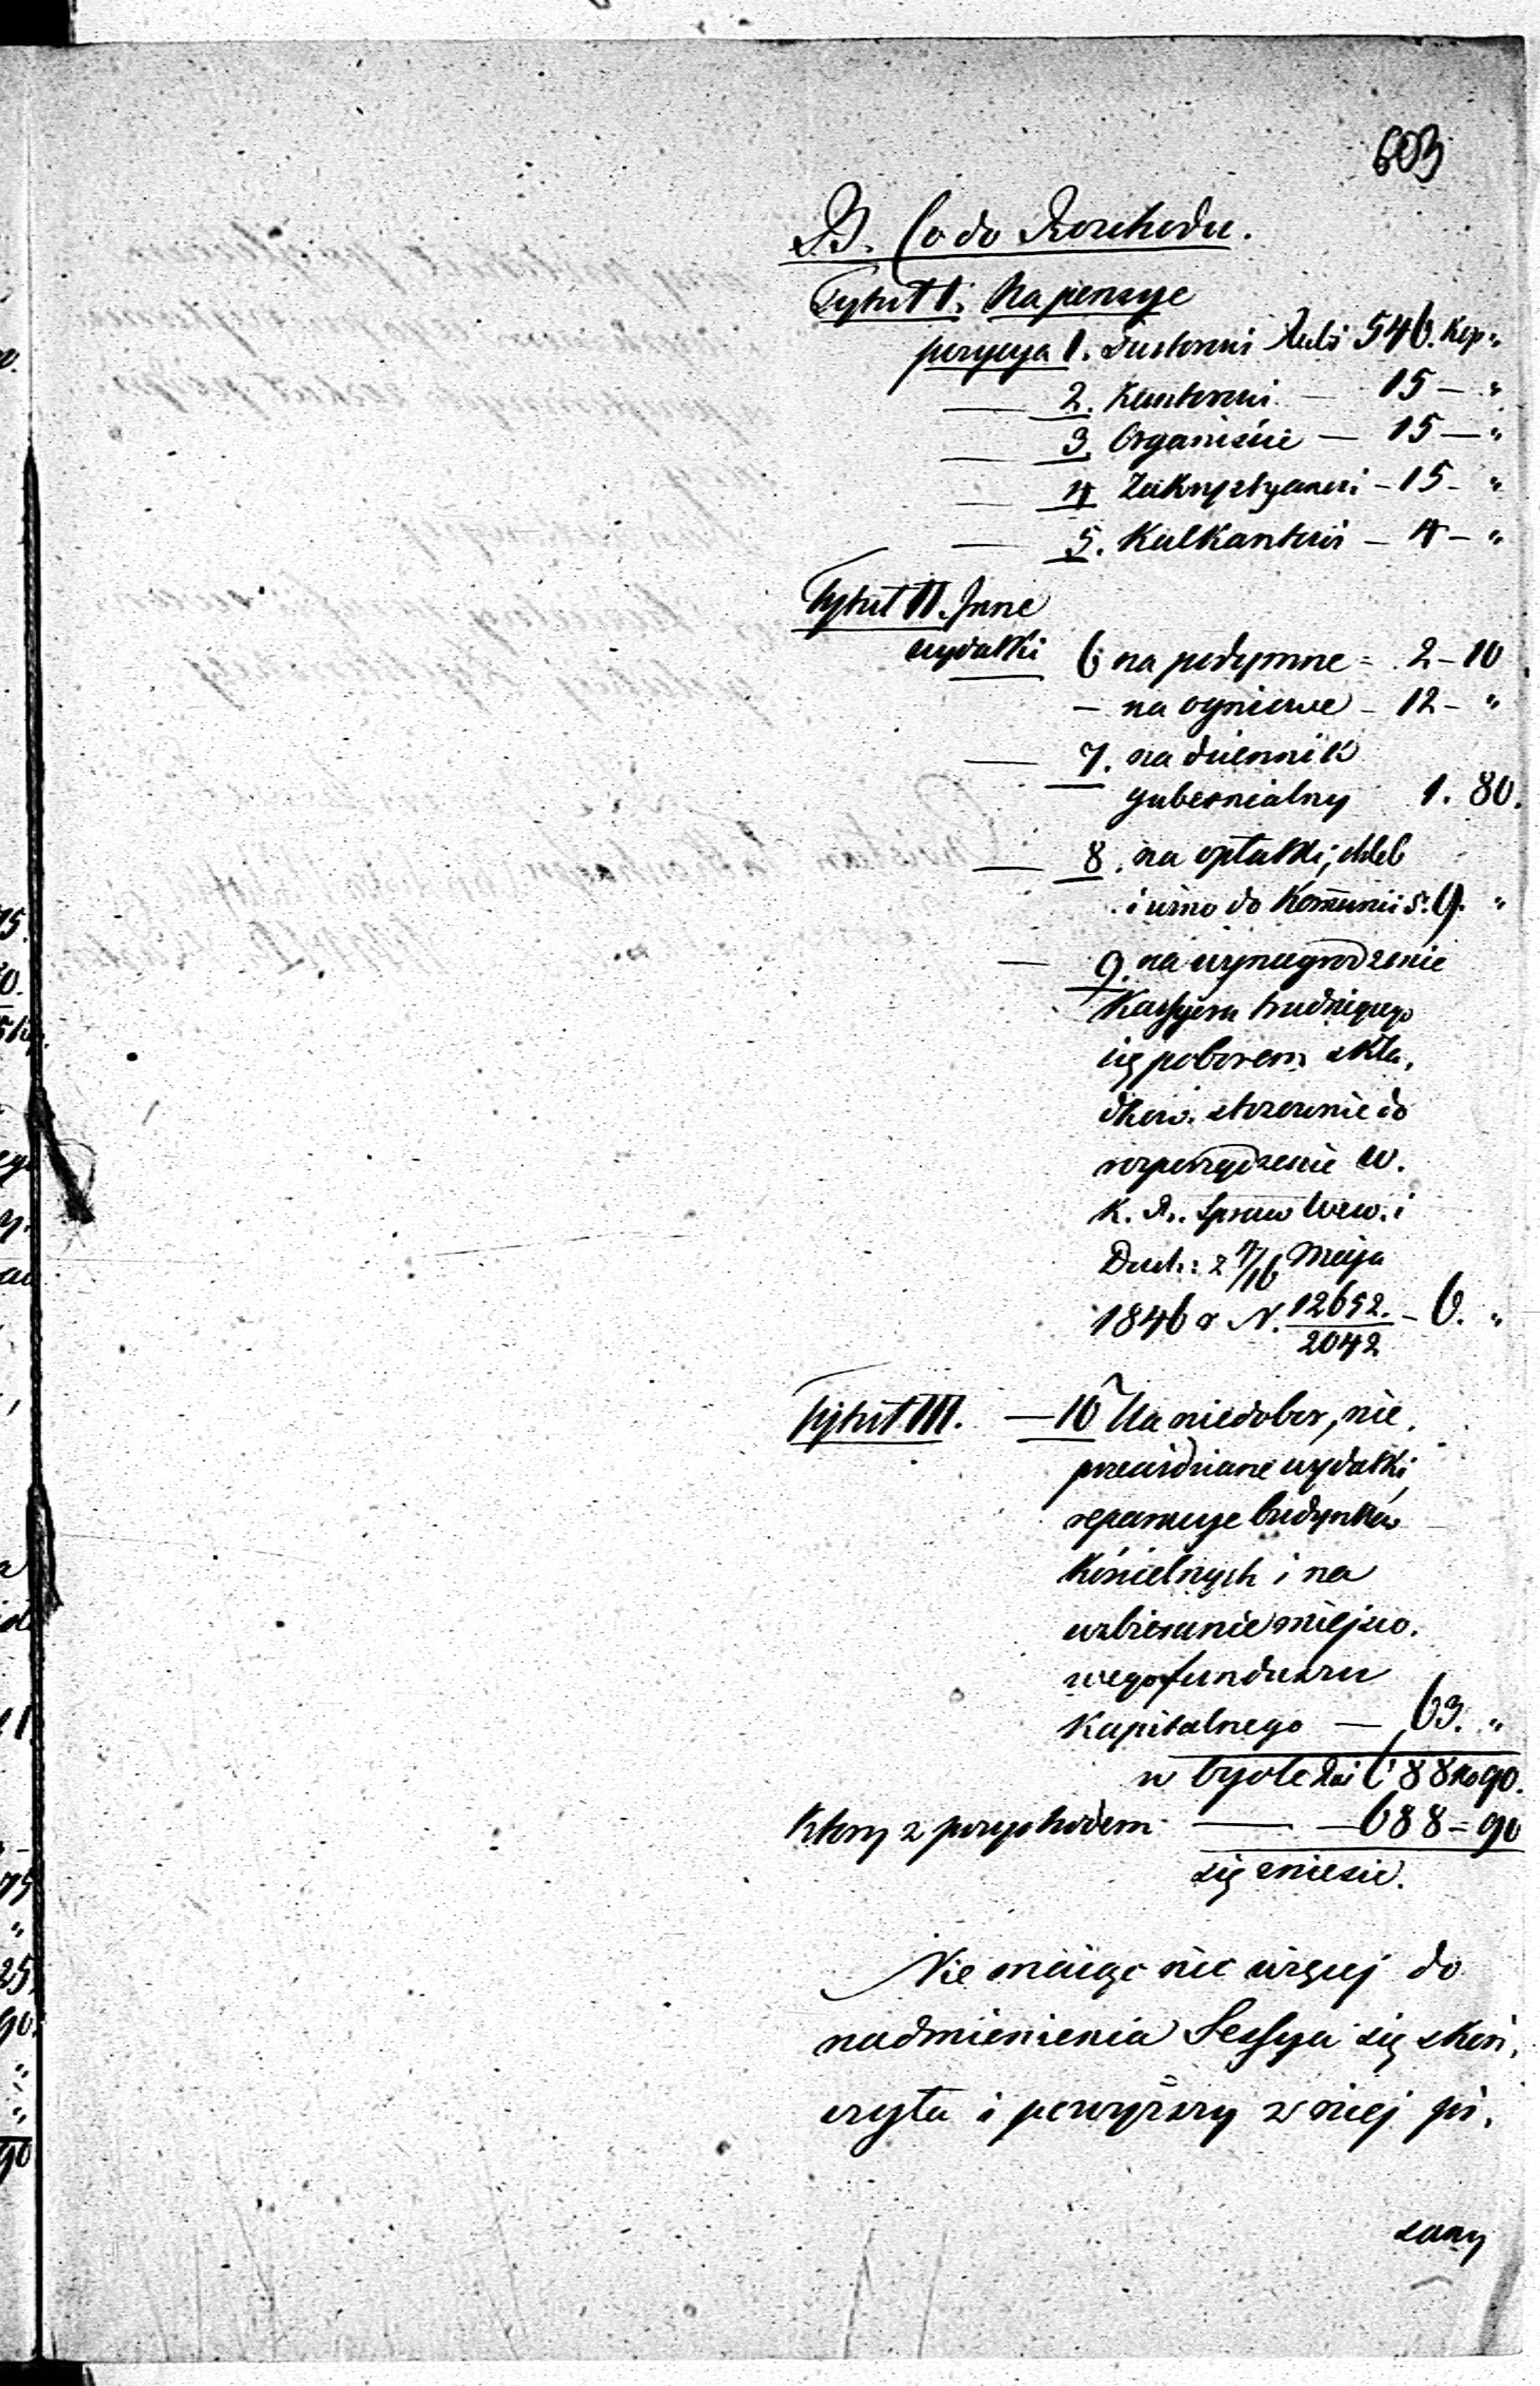 603
B. Co do Rozchodu.
Tytuł I. Na pensye
pozycya 1. Pastorowi Rubli 546. Kop „
— 2. Kantorowi — 15 — „
— 3. Organiście — 15 — „
— 4 Zakrystyanowi — 15 — „
— 5. Kalkantowi — 4 — „
Tytuł II. Inne
wydatki 6 na podymne = 2 — 10
— na ogniowe — 12 — „
— 7. na dziennik
gubernialny 1. 80.
— 8. na opłatki, chleb
i wino do Kom̄unii s. 9. „
— 9. na wynagrodzenie
Kassyera trudniącego
się poborem skła,
dkow. stosownie do
rozporządzenie W.
K. R. Spraw Wew. i
Duch: z 4/16 Maja
1846 r N. 12652./2042 — 6. „
Tytuł III. — 10 Na niedobor, nie,
przewidziane wydatki,
reparacye budynków
Kościelnych i na
uzbieranie miejsco.
wego funduszu
Kapitalnego — 63. „
w tyole Rsr 688 ko 90.
Ktory z przychodem — — 688 = 90
się zniesie.
Nie maiąc nic więcej do
nadmienienia Sessya się skoń,
czyła i powyższy w niej pi,
sany